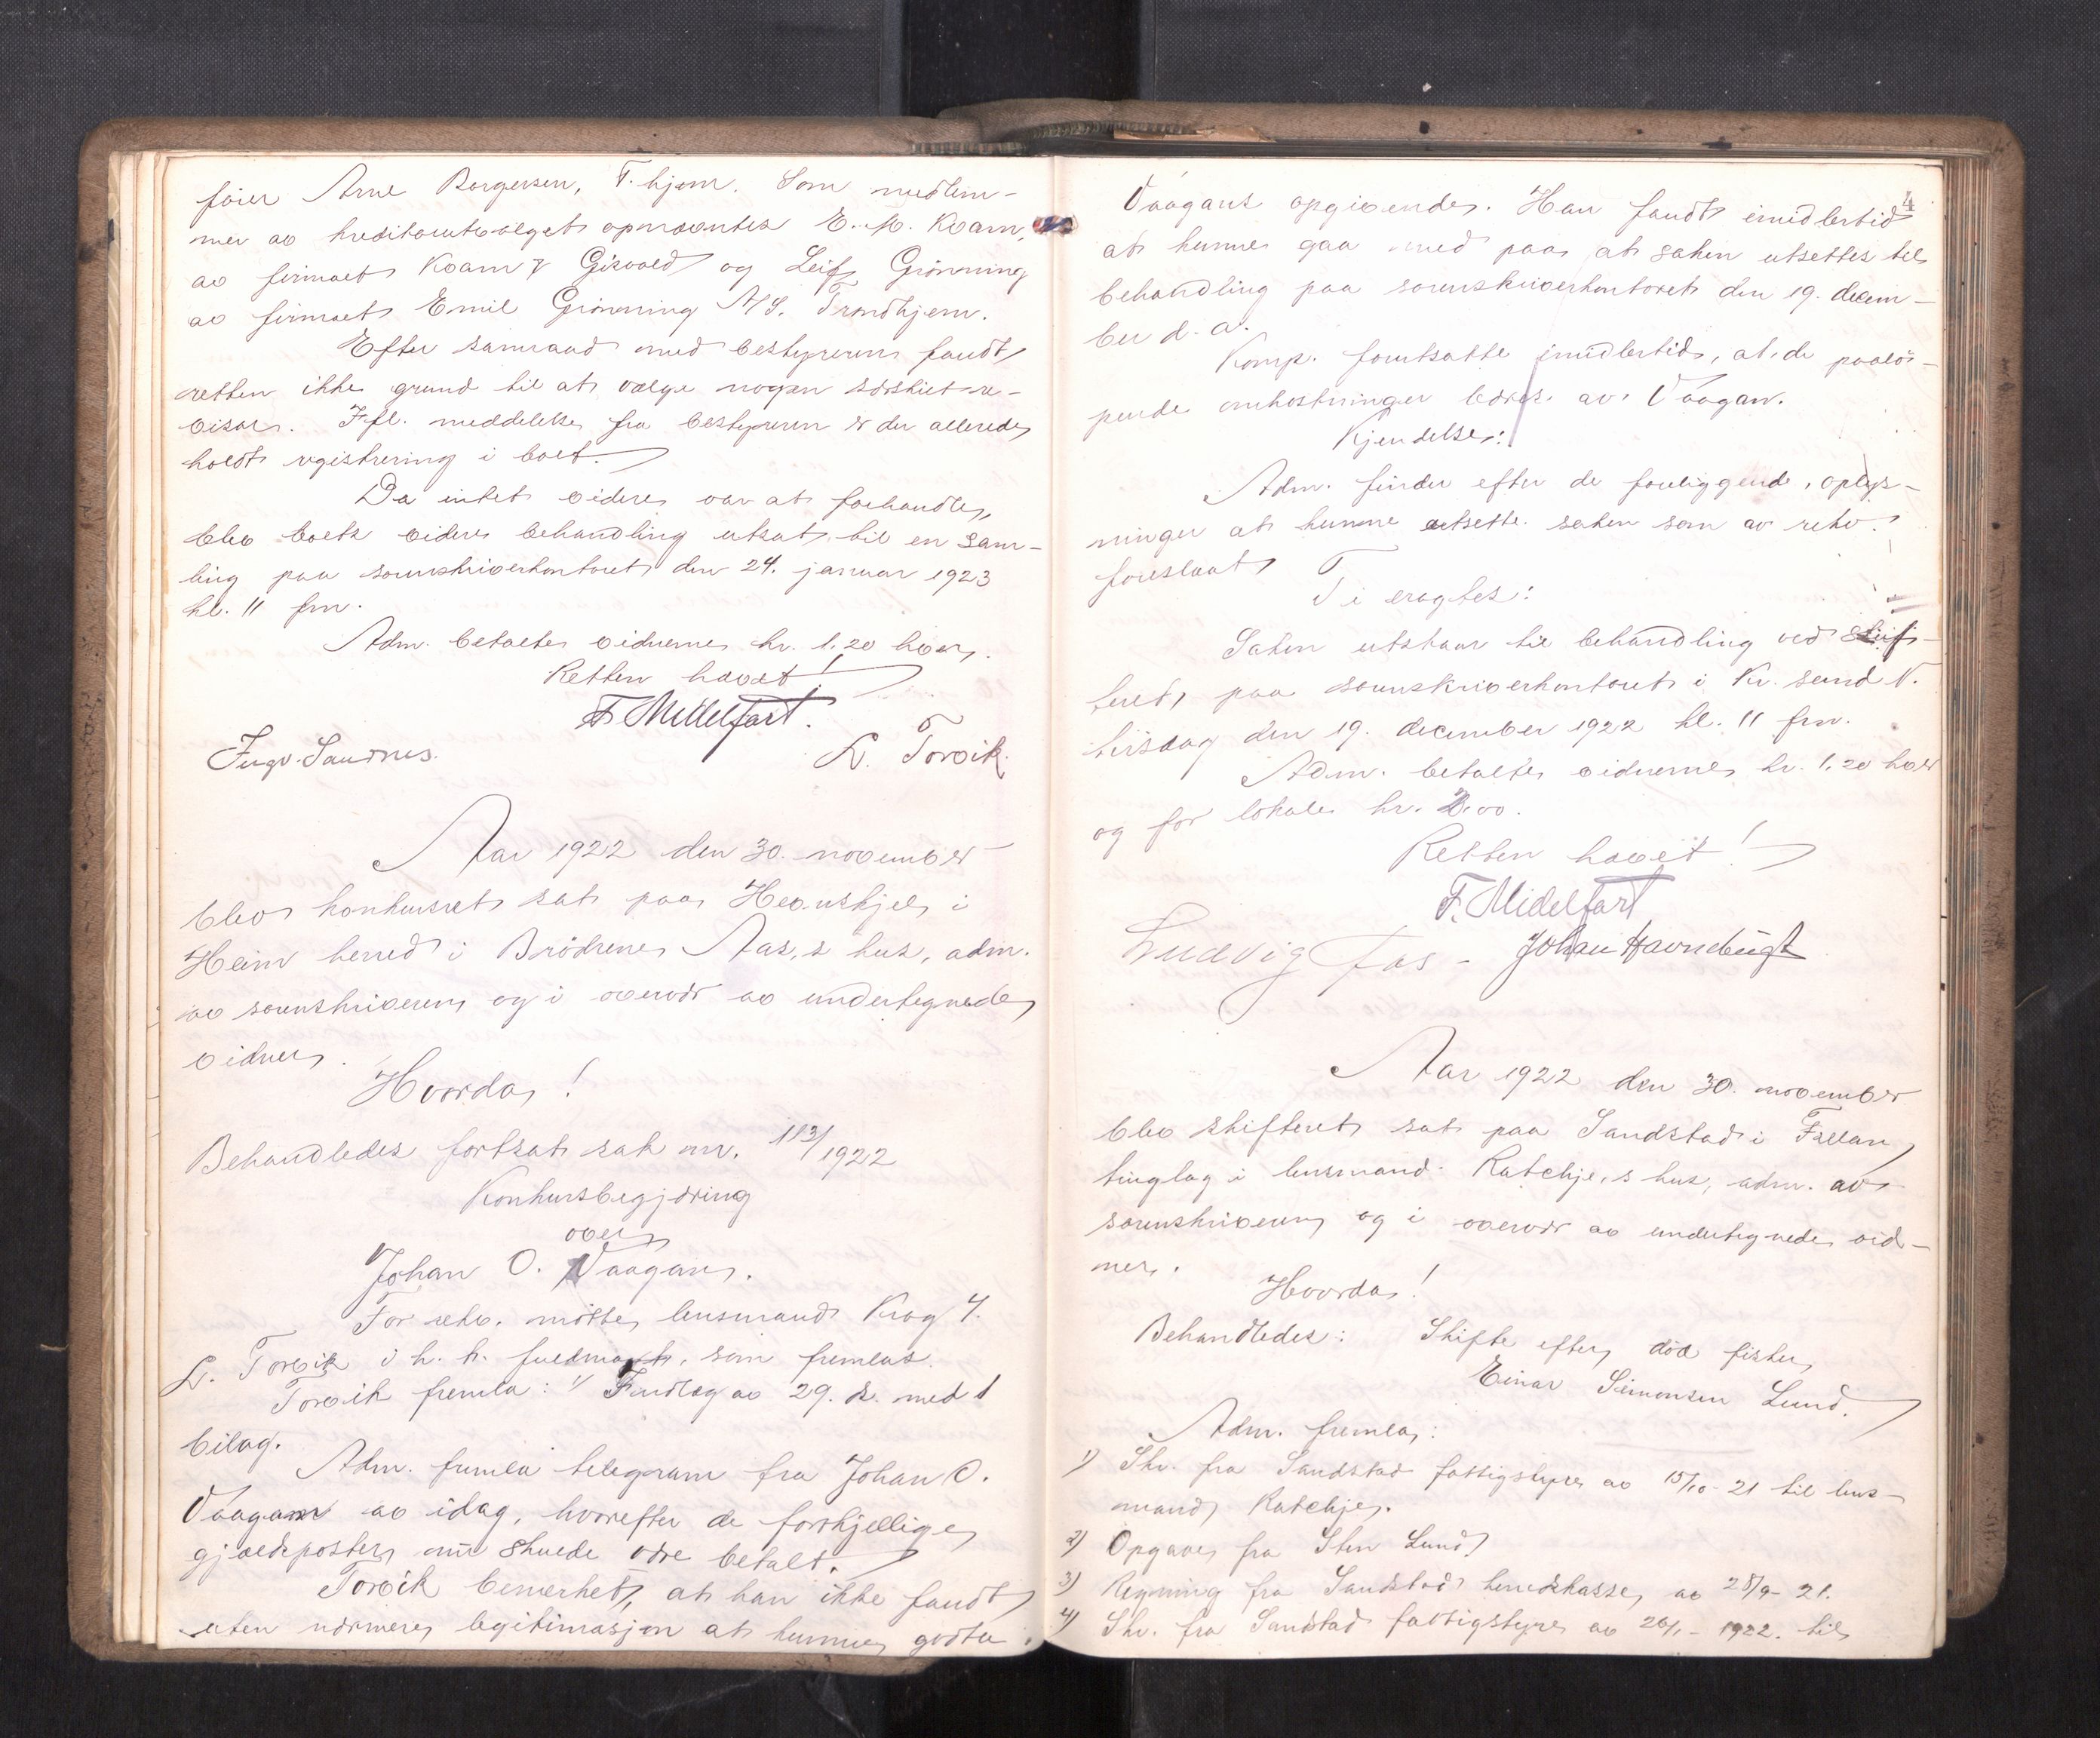 fører Arne Borgersen, T.hjem. Som medlem-
mer av kreditorutvalget opnævntes E. M. Kvam,
av firmaet Kvam & Gisvold og Leif Grönning
av firmaet Emil Grönning A/S. Trondhjem.
Efter samraad med bestyreren fandt
retten ikke grund til at vælge nogen særskilt re-
visor. Ifl. meddelelse fra bestyreren er der allerede
holdt registrering i boet.
Da intet videre var at forhandle,
blev boets videre behandling utsat til en sam-
ling paa sorenskriverkontoret den 24. januar 1923
kl. 11 fm.
Adm. betalte vidnerne kr. 1.20 hver.
Retten hævet!
F. Midelfart.
Ingv. Sandnes. L. Torvik.
Aar 1922 den 30. november
blev konkursret sat paa Hevnskjel i
Heim herred i Brödrene Aas,s hus, adm.
av sorenskriveren og i overvær av undertegnede
vidner.
Hvorda!
Behandledes fortsat sak nr. 113/1922
Konkursbegjæring
over
Johan O. Vaagan.
For rekv. mötte lensmand Krog f.
L. Torvik i h. t. fuldmagt, som fremlas.
Torvik fremla: 1/ Indlæg av 29. ds. med 1
bilag.
Adm. fremla telegram fra Johan O.
Vaagan av idag, hvorefter de forskjellige
gjældsposter nu skulde være betalt.
Torvik bemerket, at han ikke fandt
uten nærmere legitimasjon at kunne godta
4
Vaagans opgivende. Han fandt imidlertid
at kunne gaa med paa at saken utsettes til
behandling paa sorenskriverkontoret den 19. decem-
ber d. a.
Komp. forutsatte imidlertid, at de paalö-
pende omkostninger bæres av Vaagan.
Kjendelse:
Adm. finder efter de foreliggende oplys-
ninger at kunne utsette saken som av rekv.
foreslaat
Ti eragtes:
Saken utstaar til behandling ved skif-
teret paa sorenskriverkontoret i Kr.sund N.
tirsdag den 19. december 1922 kl. 11 fm.
Adm. betalte vidnerne kr. 1.20 hver
og for lokale kr. 2.00.
Retten hævet!
F. Midelfart
Ludvig Aas - Johan Havnebugt
Aar 1922 den 30. november
blev skifteret sat paa Sandstad i Fillan
tinglag i lensmand Ratchje,s hus, adm. av
sorenskriveren og i overvær av undertegnede vid-
ner.
Hvorda!
Behandledes: Skifte efter död fisker
Einar Simonsen Lund.
Adm. fremla:
1) Skr. fra Sandstad fattigstyre av 15/10-21 til lens-
mand Ratchje.
2) Opgave fra Sten Lund
3) Regning fra Sandstad herredskasse av 28/9-21.
4) Skr. fra Sandstad fattigstyre av 26/1-1922. til